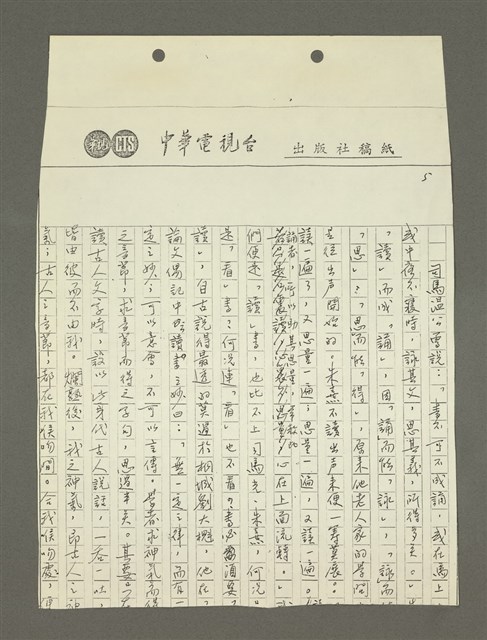 CTS
中華電視台
出版社稿紙
5
司馬温公曾說:「書不可不成誦,或在馬上
或中夜不寢時,詠其文,思其義,所得多矣。」
「讀」而成「誦」,因「誦」而能「詠」,「詠」而
「思」,「思」而能「得」,原來他老人家的學問
是從出声開始的。朱熹不讀出声來便
讀一遍了,又思量一遍;思量一遍,又讀一遍。
誦者,所以助其思量,
心在上面流轉。
們便是「讀」書,也比不上司馬光、朱熹,何況
是「看」書?何況連「看」也不看?書必
讀」,自古說得最透的莫過於桐城劉大櫆,他在
論文偶記中曰:無一定之律,而有一
定之妙;可以意會,不可以言傳。學者求神氣而得
之音節,求音節而得之字句,思過半矣。其要
讀古人文字時,設以此身代古人說話,一吞一吐,
皆由彼而不由我。爛熟後,我之神氣,即古人之神
氣;古人之音節,都在我喉吻間。合我喉吻處,便